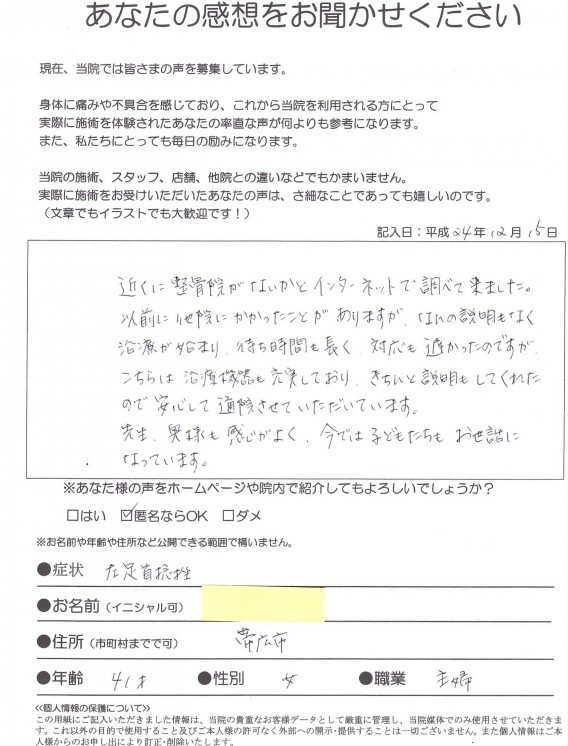 あなたの感想をお聞かせください
現在、当院では皆さまの声を募集しています。
身体に痛みや不具合を感じており、これから当院を利用される方にとって
実際に施術を体験されたあなたの率直な声が何よりも参考になります。
また、私たちにとっても毎日の励みになります。
当院の施術、スタッフ、店舗、他院との違いなどでもかまいません。
実際に施術をお受けいただいたあなたの声は、ささいなことであっても嬉しいのです。
（文章でもイラストでも大歓迎です！）
記入日：平成24年12月15日
近くに整骨院がないかとインターネットで調べて来ました。
以前に他院にかかったことがありますが、なんの説明もなく
治療が始まり、待ち時間も長く、対応も遅かったのですが、
こちらは治療機器も充実しており、きちんと説明もしてくれた
ので安心して通院させていただいています。
先生、奥様も感じがよく、今では子どもたちもお世話に
なっています。
※あなた様の声をホームページや院内で紹介してもよろしいでしょうか？
□はい ☑匿名ならOK □ダメ
※お名前や年齢や住所など公開できる範囲で構いません。
●症状 左足首捻挫
●お名前（イニシャル可）
●住所（市町村までで可） 帯広市
●年齢 41才 ●性別 女 ●職業 主婦
≪個人情報の保護について≫
この用紙にご記入いただきました情報は、当院の貴重なお客様データとして厳重に管理し、当院媒体でのみ使用させていただきま
す。これ以外の目的で使用すること及びご本人様の許可なく外部への開示・提供することは一切ございません。また個人情報はご本
人様からのお申し出により訂正・削除いたします。